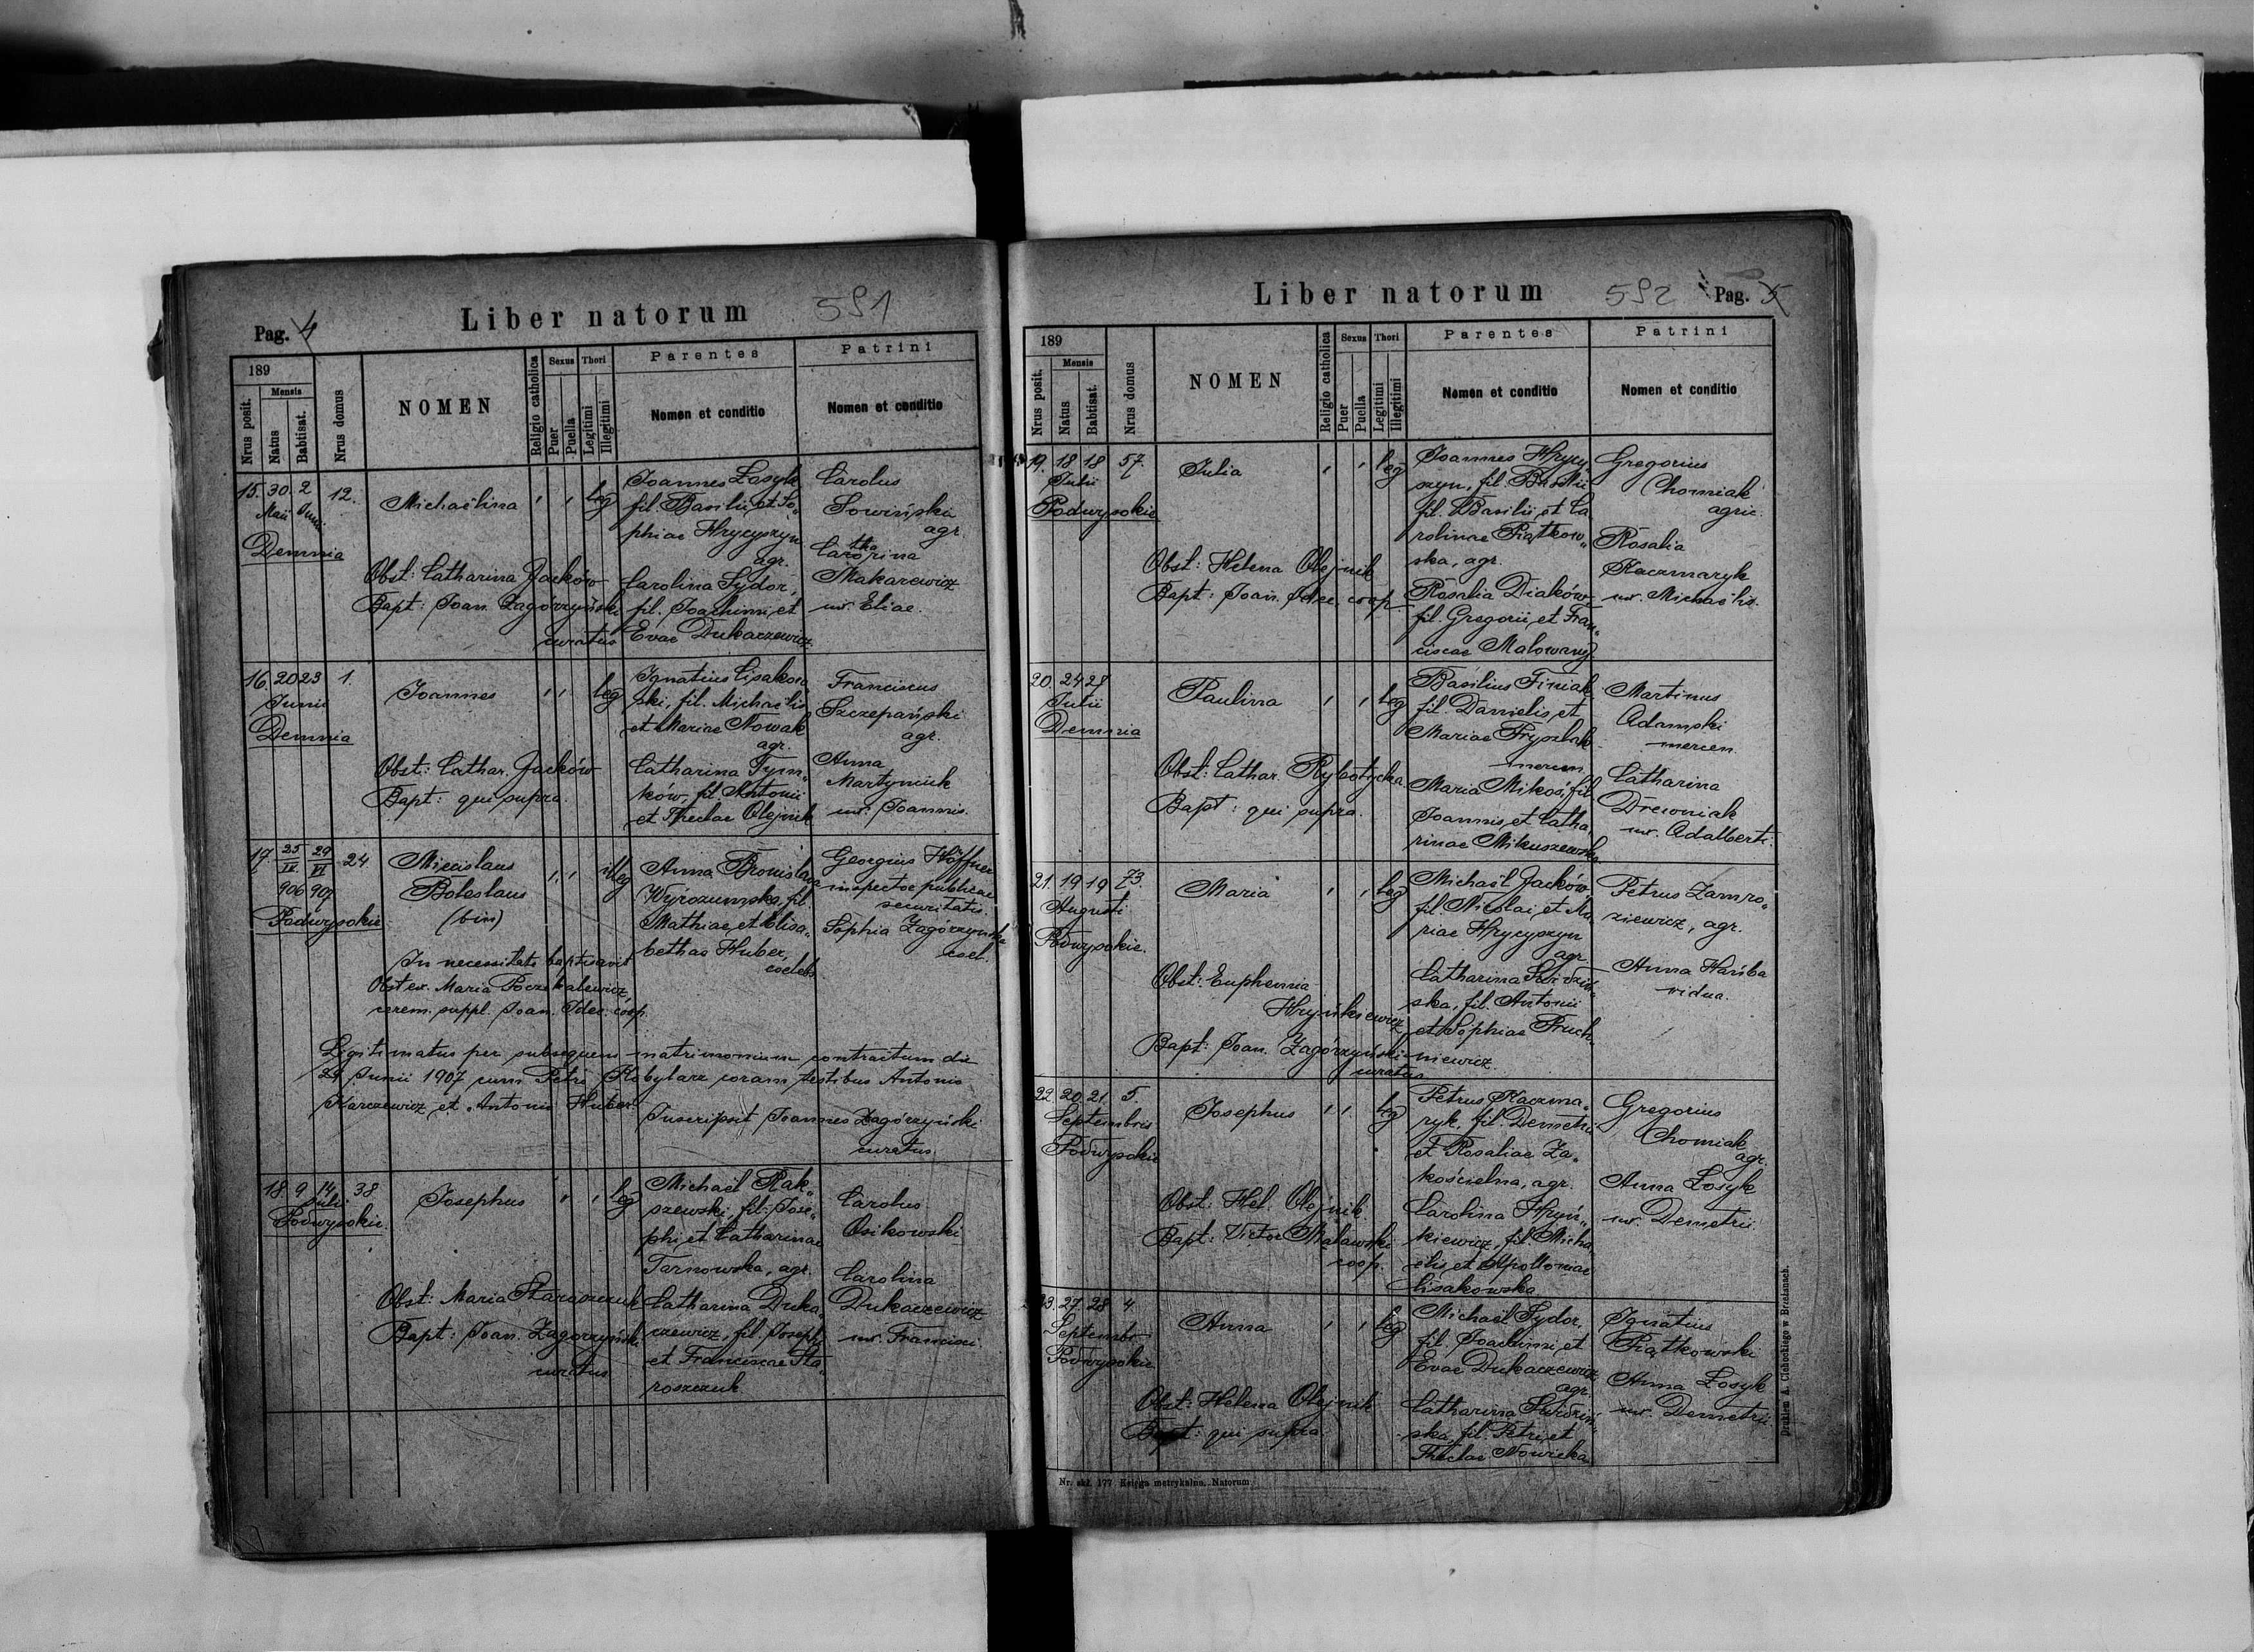 Pag. 4
Liber natorum
591
189
Nrus posit.
Mensis
Natus
Babtisat.
Nrus domus
NOMEN
Religio catholica
Sexus
Puer
Puella
Thori
Legitimi
Illegitimi
Parentes
Nomen et conditio
Patrini
Nomen et conditio
15. 30. 2 12.
Maii Junii
Demnia
Michaëlina
leg
Obst: Catharina Jacków
Bapt: Joan. Zagórzyński
curatus
Joannes Łosyk
fil. Basilii et So„
phiae Hrycyszyn
agr.
Carolina Sydor,
fil. Joachimi, et
Evae Dukaczewicz
Carolus
Sowińska
agr.
Makarewicz
ux. Eliae.
16. 20 23 1.
Junii
Demnia
Joannes
leg
Obst: Cathar. Jacków
Bapt: qui supra.
Ignatius Lisakow„
ski, fil. Michaëlis
et Mariae Nowak
agr.
Catharina Tym„
ków, fil. Antonii
et Theclae Olejnik
Franciscus
Szczepański
agr.
Anna
Martyniuk
ux. Joannis.
17. 25 29 24
IX VI
906 907
Podwysokie
Miecislaus
Boleslaus
(bin)
illeg
In necessitate baptisavit
Obstex. Maria Poczekalewicz,
cerem. suppl. Joan. Idec. coop.
Anna Bronislava
Wyrozumska, fil.
Mathiae, et Elisa„
bethae Huber,
coelebs
Georgius Höffner
inspector publicae
securitatis.
Sophia Zagórzyńska
coel.
Legitimatus per subsequens matrimonium contractum die
29 Junii 1907 cum Petro Kobylarz coram testibus Antonio
Karczewicz et Antonio Huber.
Inscripsit Joannes Zagórzyński
curatus.
18. 9 14 38
Julii
Podwysokie.
Josephus
leg
Obst: Maria Staroszczuk
Bapt: Joan. Zagórzyński
curatus
Michaël Rak„
szewski, fil. Jose„
phi, et Catharinae
Tarnowska, agr.
Catharina Duka
czewicz, fil. Josephi
et Franciscae Sta„
roszczuk
Carolus
Osikowski
Carolina
Dukaczewicz
ux. Francisci.
Liber natorum
592
Pag. 5
189
Nrus posit.
Mensis
Natus
Babtisat.
Nrus domus
NOMEN
Religio catholica
Sexus
Puer
Puella
Thori
Legitimi
Illegitimi
Parentes
Nomen et conditio
Patrini
Nomen et conditio
19. 18 18 57.
Julii
Podwysokie
Julia
leg
Obst: Helena Olejnik
Bapt: Joan. Idec. coop.
Joannes Hrycy„
szyn, fil. Basilii
fil. Basilii, et Ca„
rolinae Piątkow„
ska, agr.
Rosalia Diaków
fil. Gregorii, et Fran„
ciscae Malowany
Gregorius
Chomiak
agric.
Rosalia
Kaczmaryk
ux. Michaëlis.
20. 24 28
Julii
Demnia
Paulina
leg
Obst: Cathar. Rybotycka.
Bapt: qui supra.
Basilius Finiak
fil. Danielis, et
Mariae Fryszlak
mercen.
Maria Mikos, fil
Joannis, et Catha„
rinae Mikuszewska
Martinus
Adamski
mercen.
Catharina
Drewniak
ux. Adalberti.
21. 19 19 73.
Augusti
Podwysokie.
Maria
leg
Obst: Euphemia
Hryńkiewicz
Bapt: Joan. Zagórzyński
curatus
Michaël Jacków
fil. Nicolai, et Ma„
riae Hrycyszyn
agr.
Catharina Świdziń„
ska, fil. Antonii
et Sophiae Pruch„
niewicz
Petrus Zamro„
ziewicz, agr.
Anna Hańba
vidua.
22. 20. 21. 5.
Septembris
Podwysokie
Josephus
leg
Obst: Hel. Olejnik.
Bapt: Victor Maławski
coop.
Petrus Kaczma„
ryk, fil. Demetrii
et Rosaliae Za„
kościelna, agr.
Carolina Hryń„
kiewicz, fil. Micha„
ëlis, et Apolloniae
Lisakowska
Gregorius
Chomiak
agr.
Anna Łosyk
ux. Demetrii.
23. 27. 28 4.
Septembr.
Podwysokie
Anna
leg
Obst: Helena Olejnik
Bapt: qui supra.
Michaël Sydor,
fil. Joachimi, et
Evae Dukaczewicz
agr.
Catharina Świdziń„
ska, fil. Petri, et
Theclae Nowicka
Ignatius
Piątkowski
Anna Łosyk
ux. Demetrii.
Nr. skł. 177. Księga metrykalna. Natorum
Drukiem A. Cichockiego w Brzeżanach.